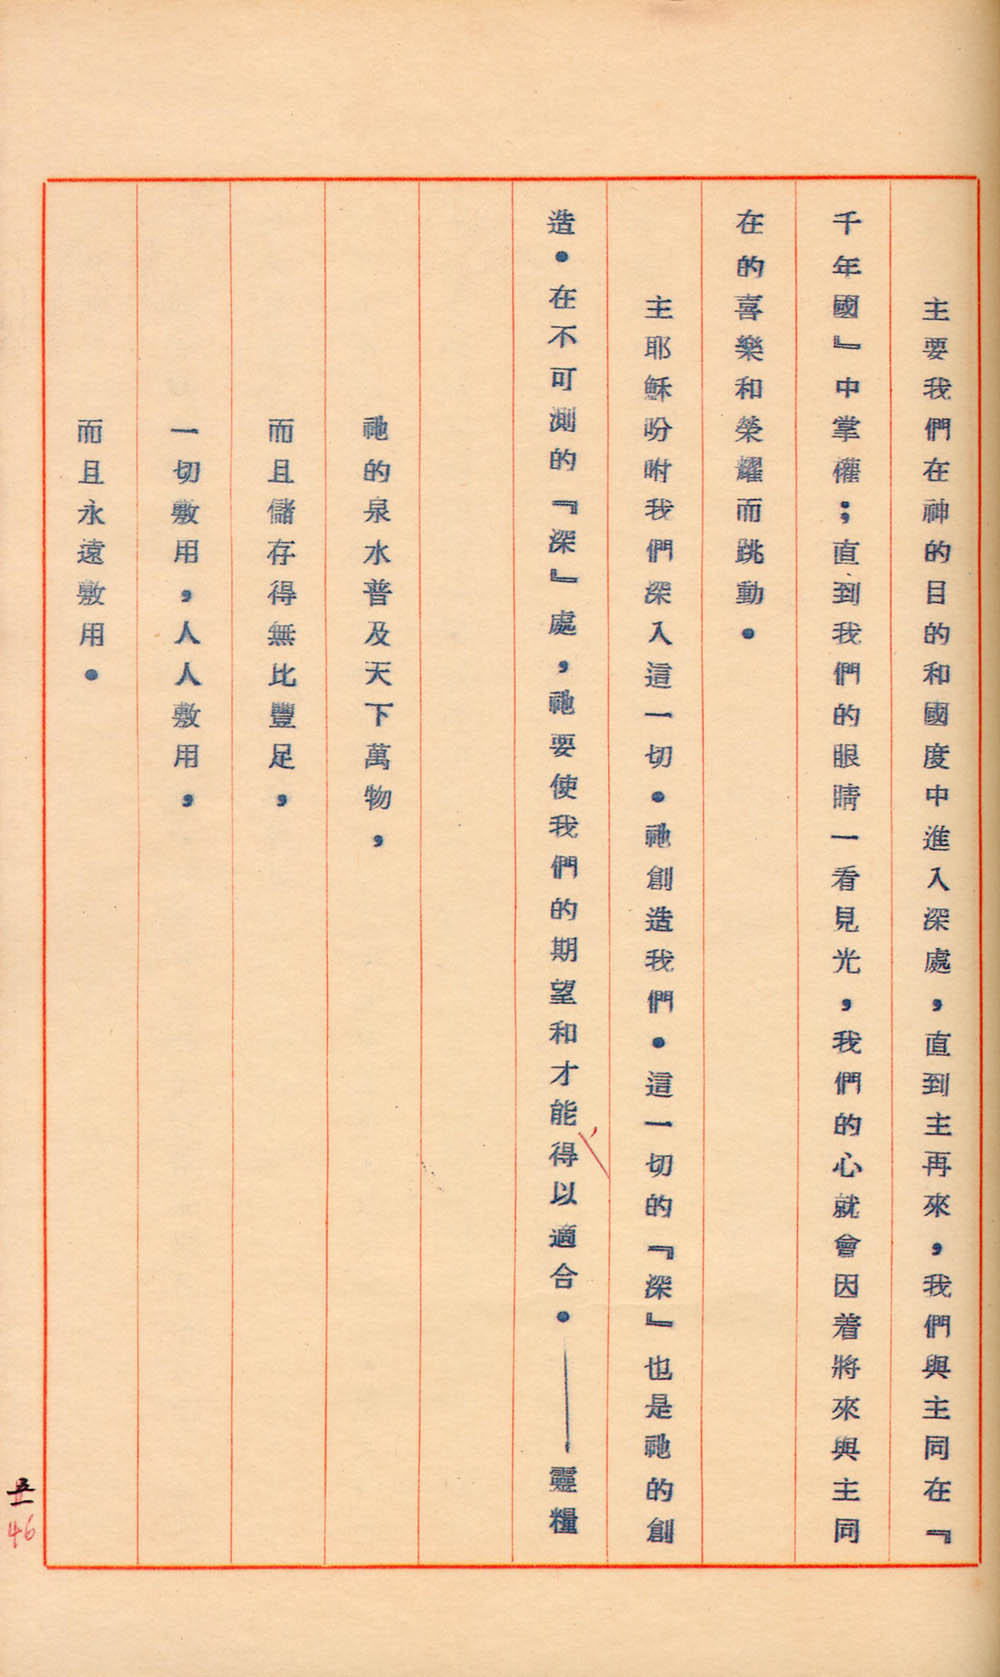 主要我們在神的目的和國度中進入深處，直到主再來，我們與主同在『
千年國』中掌權；直到我們的眼睛一看見光，我們的心就會因着將來與主同
在的喜樂和榮耀而跳動。
主耶穌吩咐我們深入這一切。祂創造我們。這一切的『深』也是祂的創
造。在不可測的『深』處，祂要使我們的期望和才能得以適合。——靈糧
祂的泉水普及天下萬物，
而且儲存得無比豐足，
一切敷用，人人敷用，
而且永遠敷用。
46